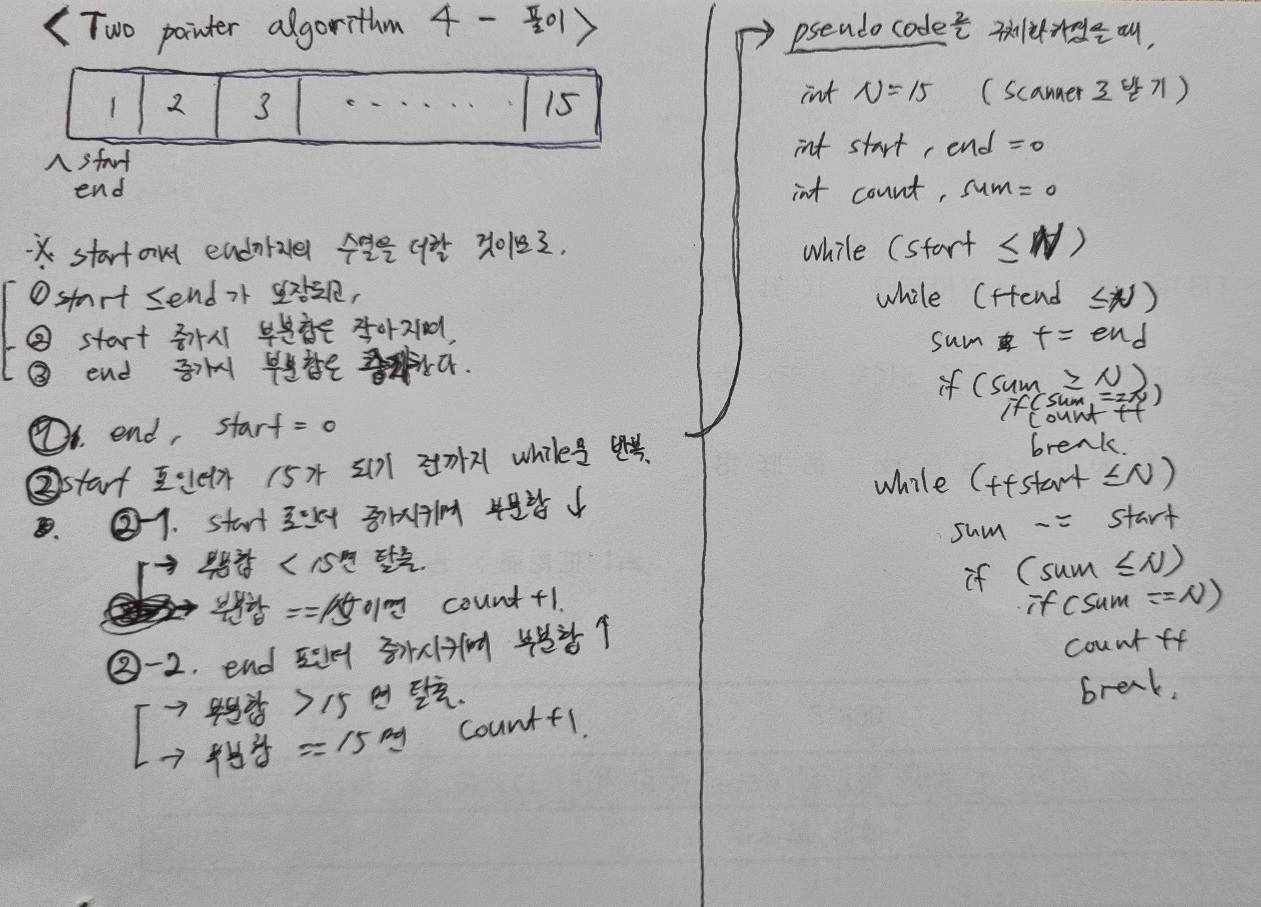 < Two pointer algorithm 4 - 풀이 >
1 2 3 ........ 15
^ start
end
※ start에서 end까지의 수열을 더할 것이므로.
① start ≤ end가 보장되고,
② start 증가시 부분합은 작아지며,
③ end 증가시 부분합은 한다.
①. end, start = 0
② start 포인터가 15가 되기 전까지 while문 반복.
②-1. start 포인터 증가시키며 부분합 ↓
→ 부분합 < 15면 탈출.
→ 부분합 == 15이면 count+1.
②-2. end 포인터 증가시키며 부분합 ↑
→ 부분합 > 15면 탈출.
→ 부분합 == 15면 count+1.
→ pseudo code를 구체화하였을 때,
int N=15 (scanner로 받기)
int start, end = 0
int count, sum = 0
while (start ≤ N)
while (++end ≤ N)
sum += end
if (sum ≥ N)
if (sum == N)
count ++
break.
while (++start ≤ N)
sum -= start
if (sum ≤ N)
if (sum == N)
count ++
break.